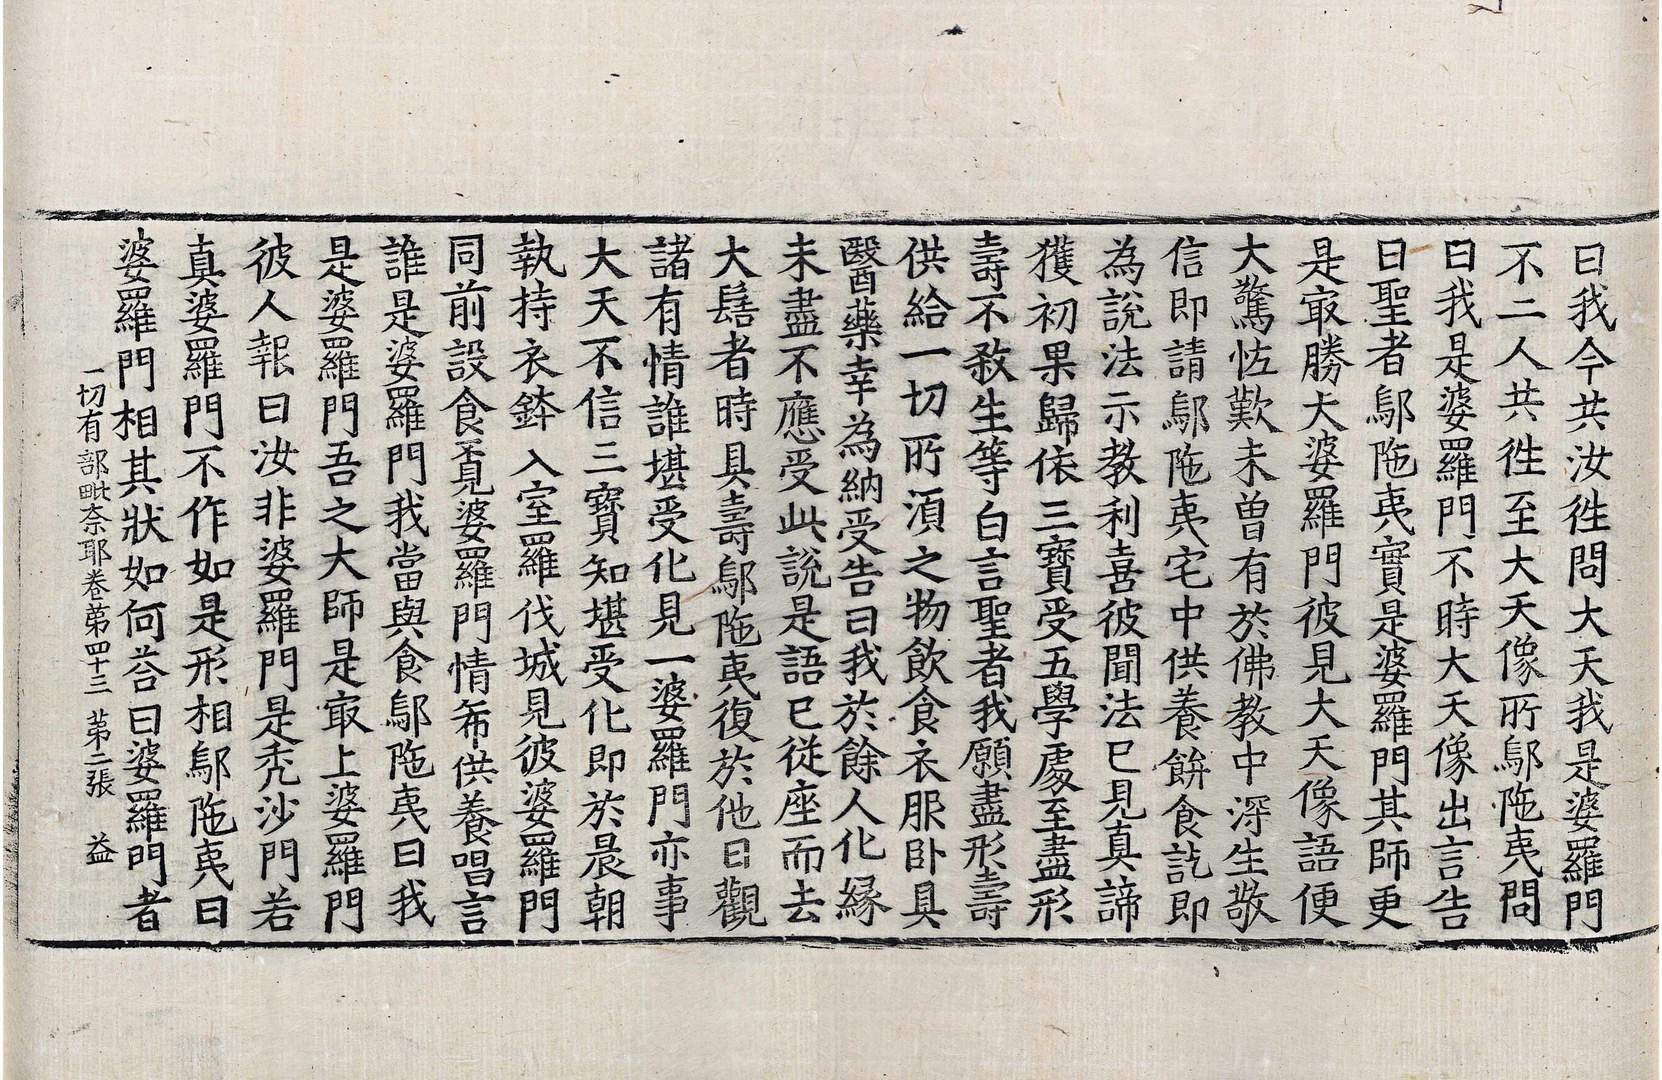 曰我今共汝徃問大天我是婆羅門
不二人共徃至大天像所鄔陁夷問
曰我是婆羅門不時大天像出言告
曰聖者鄔陁夷實是婆羅門其師更
是㝡勝大婆羅門彼見大天像語便
大驚恠歎未曽有於佛教中深生敬
信即請鄔陁夷宅中供養餅食訖即
為說法示教利喜彼聞法已見真諦
獲初果歸依三寶受五學處至盡形
壽不煞生等白言聖者我願盡形壽
供給一切所湏之物飲食衣服卧具
醫藥幸為納受告曰我於餘人化緣
未盡不應受此說是語已從座而去
大髻者時具壽鄔陁夷復於他日觀
諸有情誰堪受化見一婆羅門亦事
大天不信三寶知堪受化即於晨朝
執持衣鉢入室羅伐城見彼婆羅門
同前設食覔婆羅門情希供養唱言
誰是婆羅門我當與食鄔陁夷曰我
是婆羅門吾之大師是㝡上婆羅門
彼人報曰汝非婆羅門是禿沙門若
真婆羅門不作如是形相鄔陁夷曰
婆羅門相其狀如何荅曰婆羅門者
一切有部毗奈耶卷第四十三　第二張　益